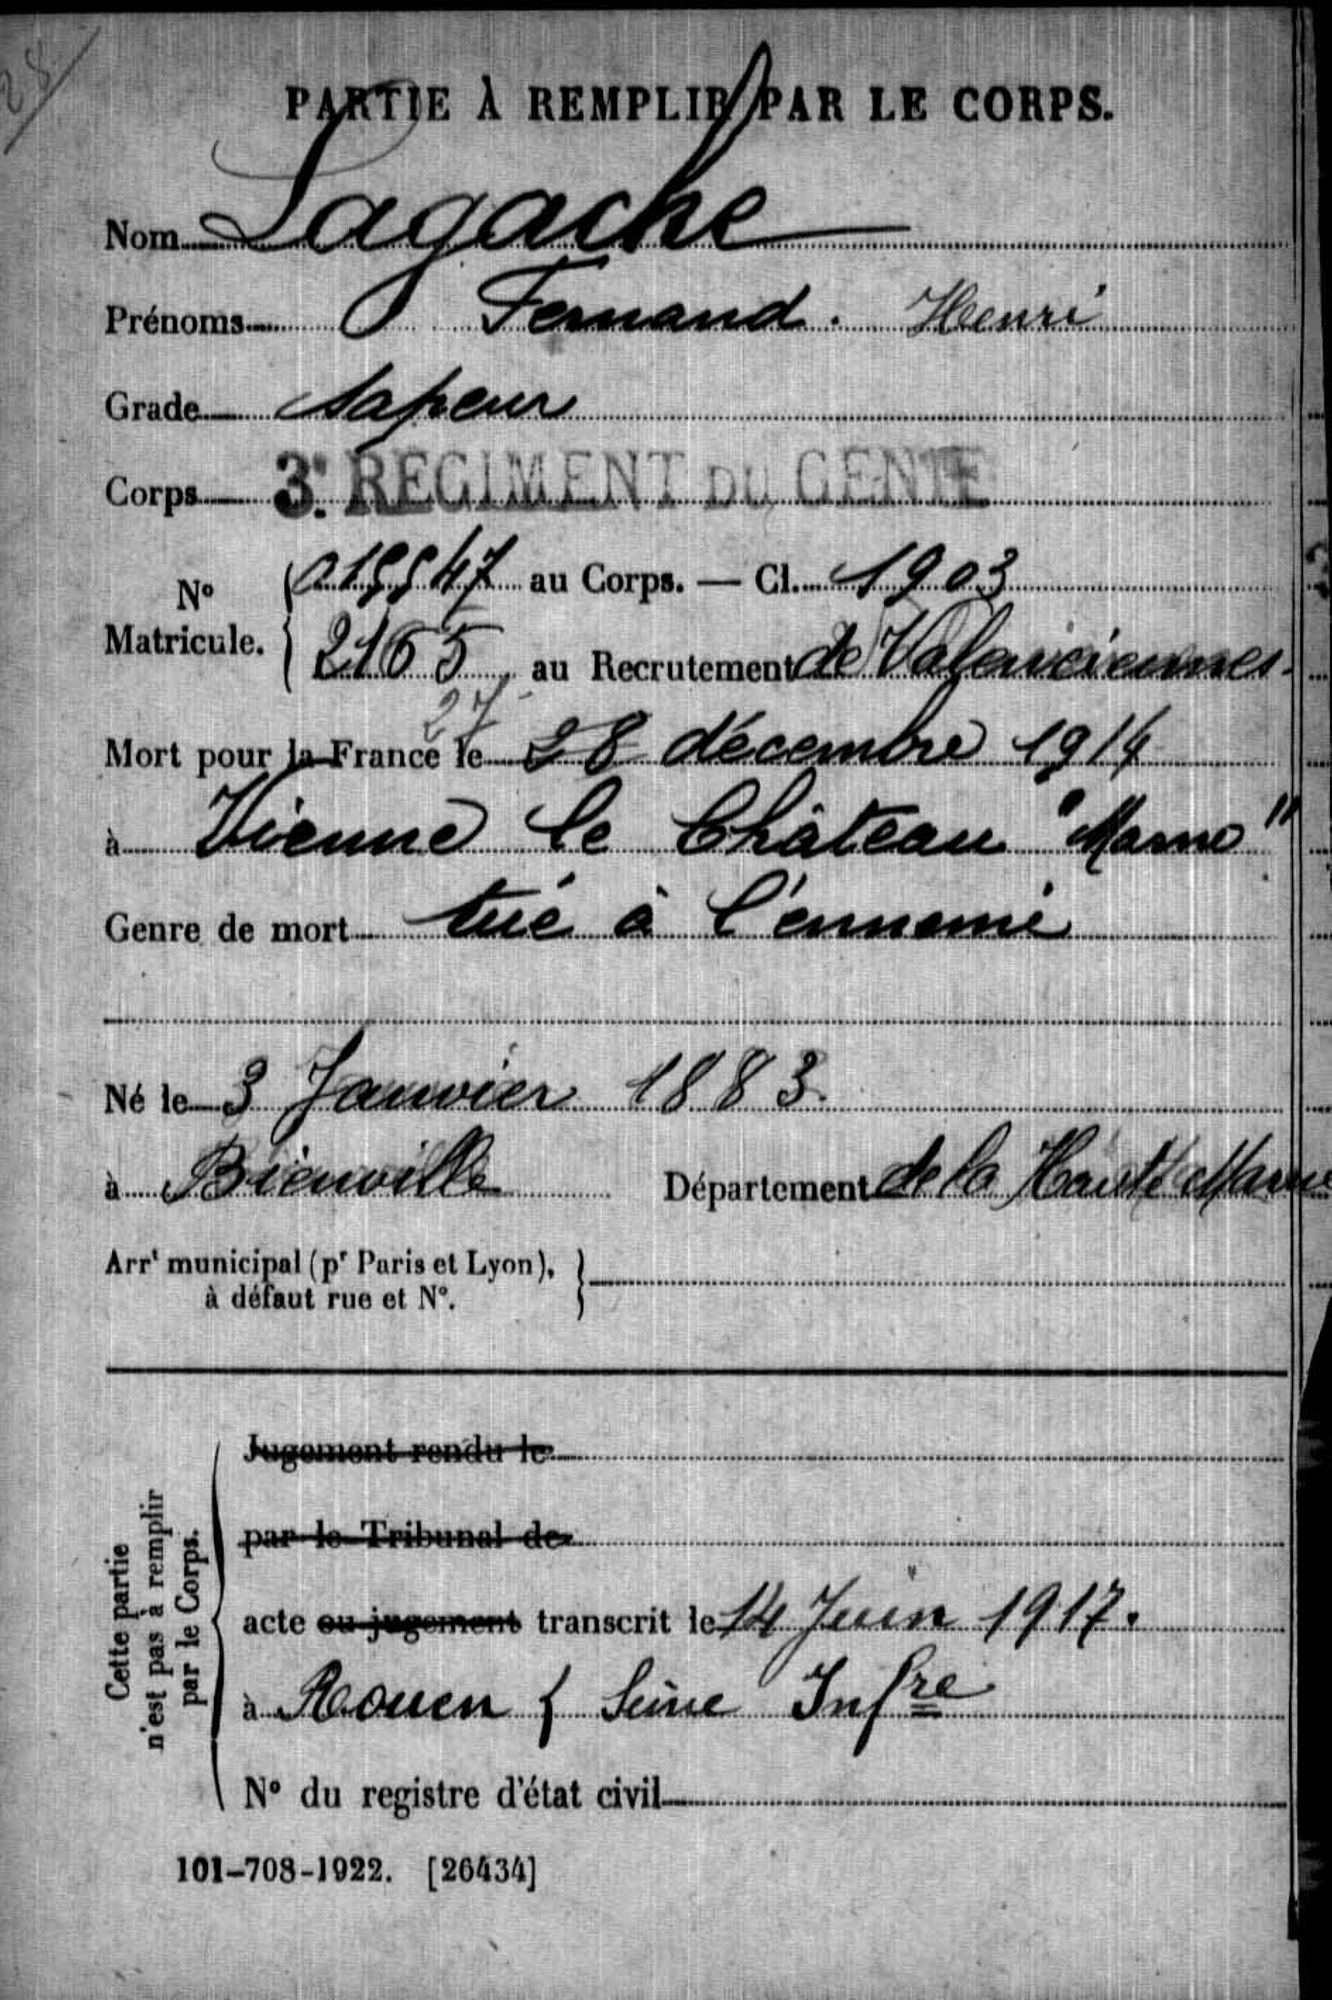 28
PARTIE À REMPLIR PAR LE CORPS.
Nom Lagache
Prénoms Fernand. Henri
Grade Sapeur
Corps 3e. REGIMENT DU GENIE
N° Matricule. { 01
au Corps. — Cl. 1903
2165 au Recrutement de Valenciennes.
27
Mort pour la France le 28 décembre 1914
à Vienne le Château "Marne"
Genre de mort tué à l'ennemi
Né le 3 Janvier 1883.
à Bienville Département de la Haute Marne
Arrt municipal (pr Paris et Lyon),
à défaut rue et N°.
Cette partie
n'est pas à remplir
par le Corps.
Jugement rendu le
par le Tribunal de
acte ou jugement transcrit le 14 Juin 1917.
à Rouen { Seine Infre
N° du registre d'état civil
101-708-1922. [26434]